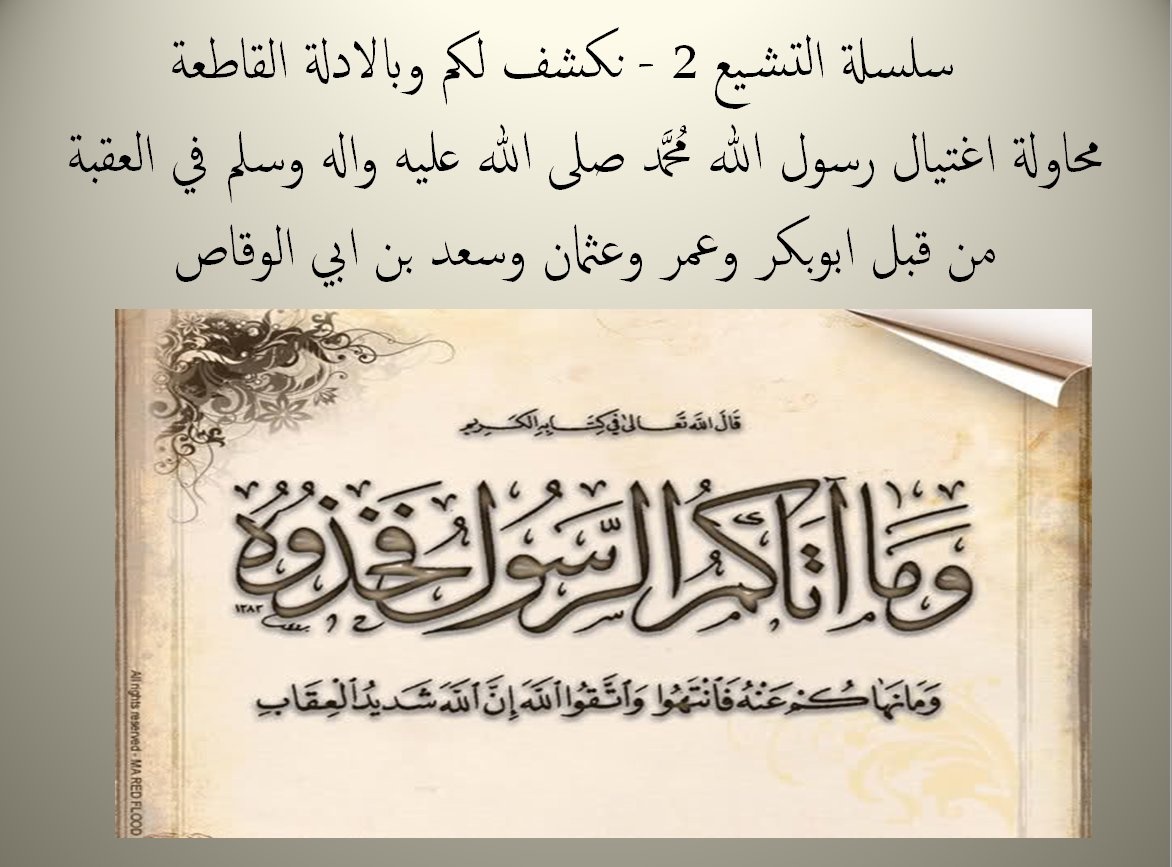 سلسلة التشيع 2 - نكشف لكم وبالادلة القاطعة
محاولة اغتيال رسول الله مُحمَّد صلى الله عليه واله وسلم في العقبة
من قبل ابوبكر وعمر وعثمان وسعد بن ابي الوقاص
قَالَ اللهُ تَعَالىٰ فِي كِتَابِهِ الْكَرِيمِ
وَمَا آتَاكُمُ الرَّسُولُ فَخُذُوهُ
١٣٨٣
وَمَا نَهَاكُمْ عَنْهُ فَانْتَهُوا وَاتَّقُوا اللَّهَ إِنَّ اللَّهَ شَدِيدُ الْعِقَابِ
All rights reserved - MA RED FLOOD